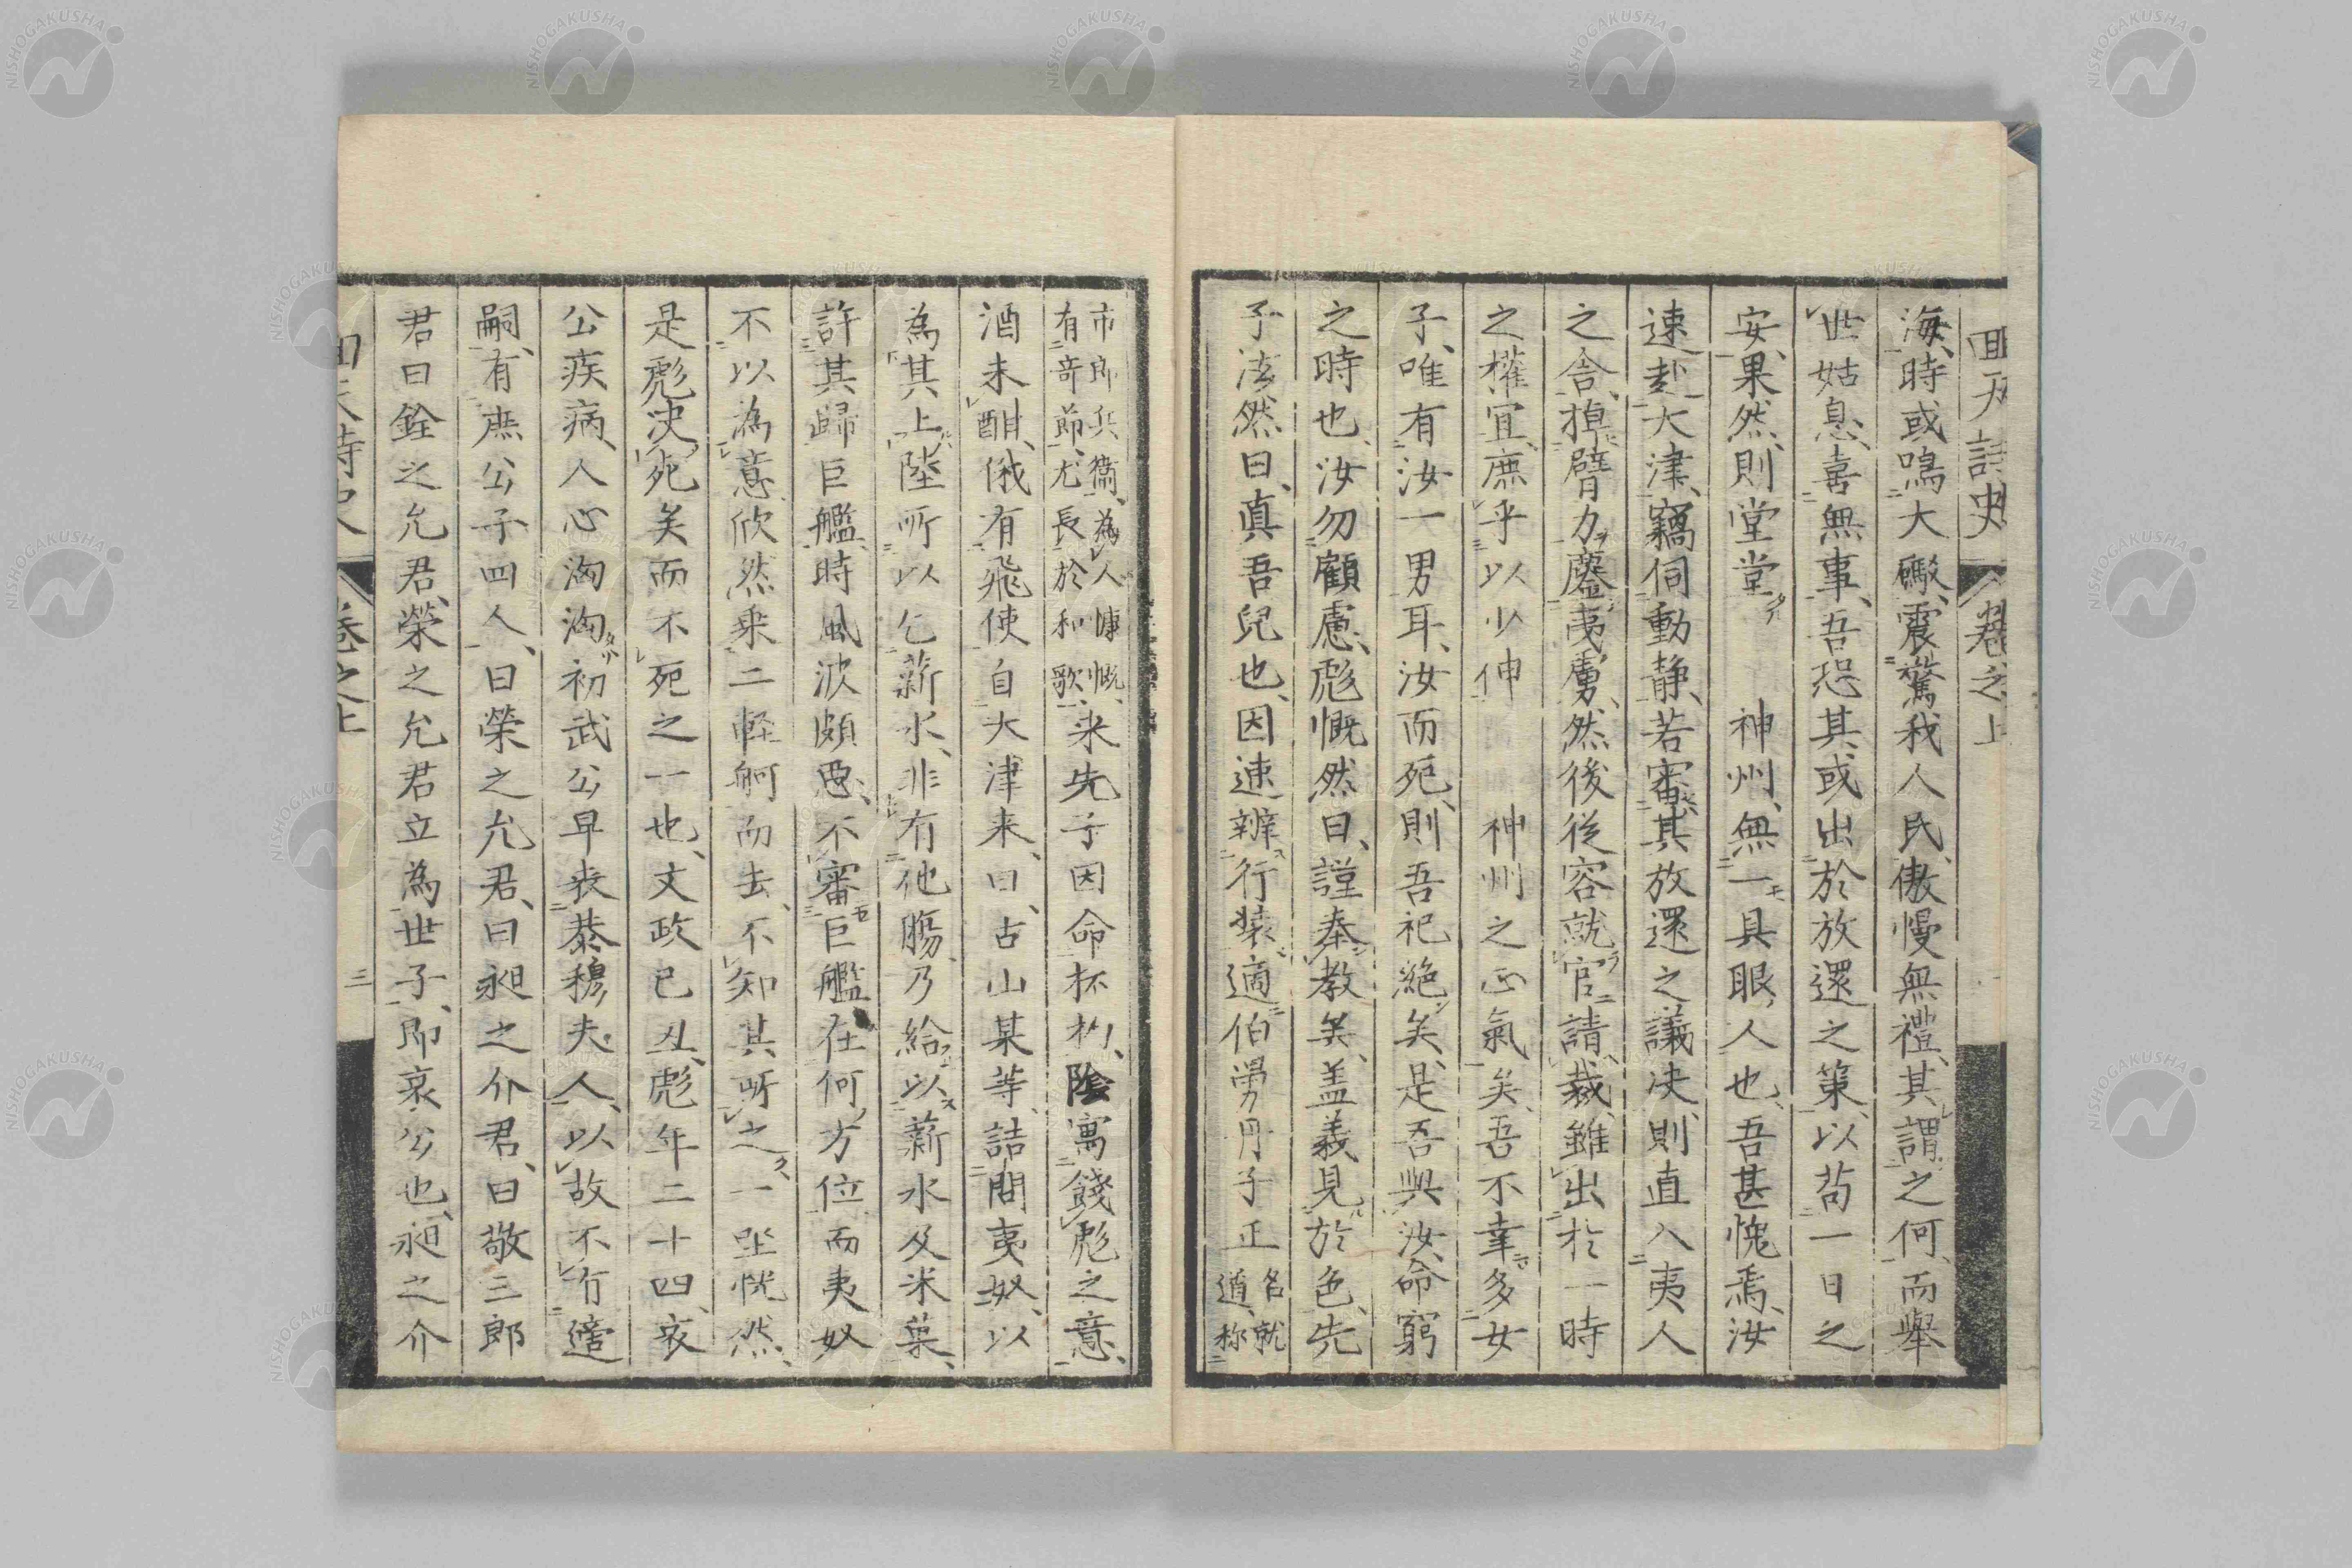 回天詩史 卷之上
海、時或鳴大礮、震驚我人民、傲慢無禮、其謂之何、而舉
世姑息、喜無事、吾恐其或出於放還之策、以苟一日之
安、果然、則堂堂 神州、無一具眼人也、吾甚愧焉、汝
速赴大津、竊伺動靜、若審其放還之議決、則直入夷人
之舍、掉臂力鏖夷虜、然後從容就官請裁、雖出於一時
之權宜、庶乎以少伸 神州之正氣矣、吾不幸多女
子、唯有汝一男耳、汝而死、則吾祀絕矣、是吾與汝命窮
之時也、汝勿顧慮、彪慨然曰、謹奉教矣、盖義見於色、先
子泫然曰、真吾兒也、因速辦行裝、適伯舅丹子正名就道、称
市郎兵衞、為人慷慨、有奇節、尤長於和歌、来先子因命杯杓、陰寓餞彪之意、
酒未酣、俄有飛使自大津来、曰、古山某等、詰問夷奴、以
為其上陸所以乞薪水、非有他腸、乃給以薪水及米菓、
許其歸巨艦、時風波頗惡、不審巨艦在何方位、而夷奴
不以為意、欣然乗二軽舸而去、不知其所之、一坐恍然、
是彪決死矣而不死之一也、文政己丑、彪年二十四、哀
公疾病、人心洶洶、初武公早喪恭穆夫人、以故不有適
嗣、有庶公子四人、曰榮之允君、曰昶之介君、曰敬三郎
君曰銓之允君、榮之允君立為世子、即哀公也、昶之介
回天詩史 卷之上 三
NISHOGAKUSHA